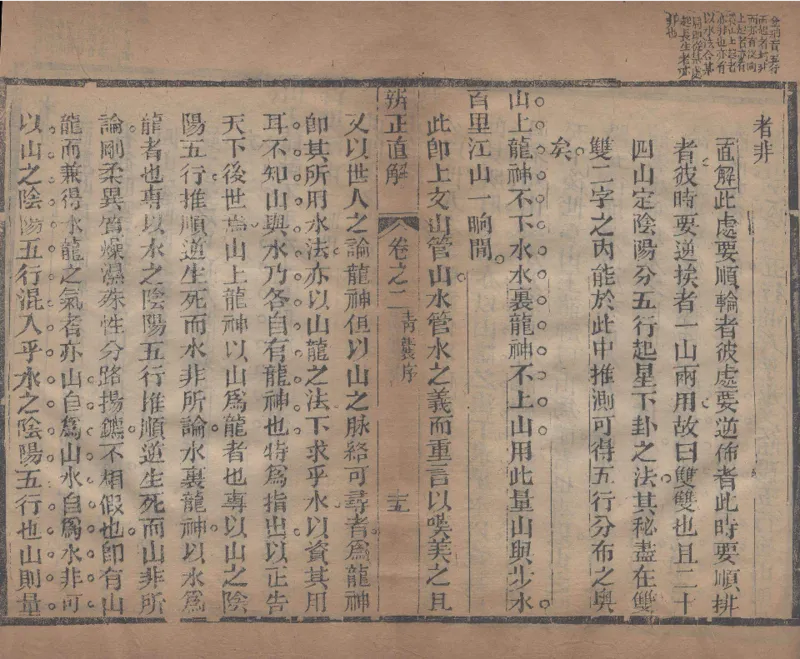 者非
直解此處要順輪者彼處要逆佈者此時要順排
者彼時要逆挨者一山兩用故曰雙雙也且二十
四山定陰陽分五行起星下卦之法其秘盡在雙
雙二字之內能於此中推測可得五行分布之奧
矣
山上龍神不下水水裏龍神不上山用此量山與步水
百里江山一晌間
此卽上文山管山水管水之義而重言以嘆美之且
辨正直解 卷之二 青囊序
又以世人之論龍神但以山之脉絡可尋者爲龍神
卽其所用水法亦以山龍之法下求乎水以資其用
耳不知山與水乃各自有龍神也特爲指出以正告
天下後世焉山上龍神以山爲龍者也專以山之陰
陽五行推順逆生死而水非所論水裏龍神以水爲
龍者也專以水之陰陽五行推順逆生死而山非所
論剛柔異質燥濕殊性分路揚鑣不相假也卽有山
龍而兼得水龍之氣者亦山自爲山水自爲水非可
以山之陰陽五行混入乎水之陰陽五行也山則量